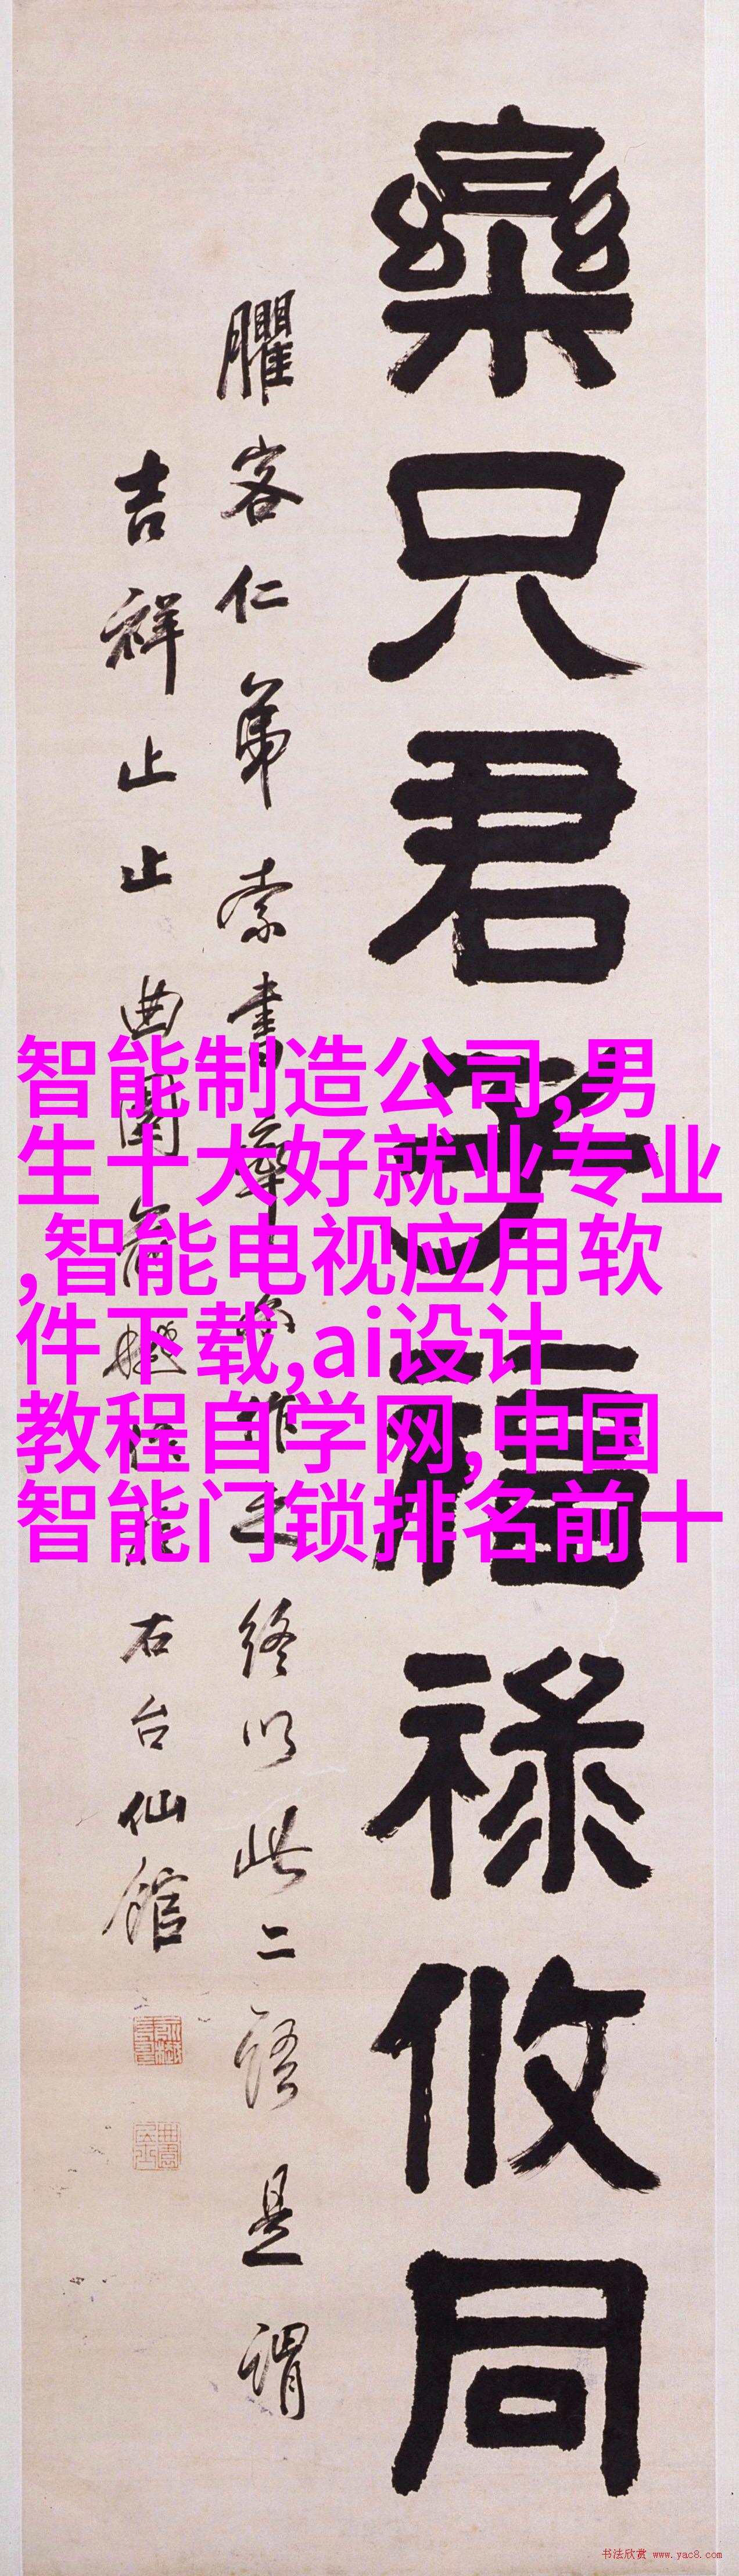 樂只君子福祿攸同
臞客仁弟索書作之終以此二語是謂
吉祥止止曲園俞樾右台仙館
智能制造公司,男
生十大好就业专业
,智能电视应用软
件下载,ai设计
教程自学网,中国
智能门锁排名前十
书法欣赏 www.yac8.com